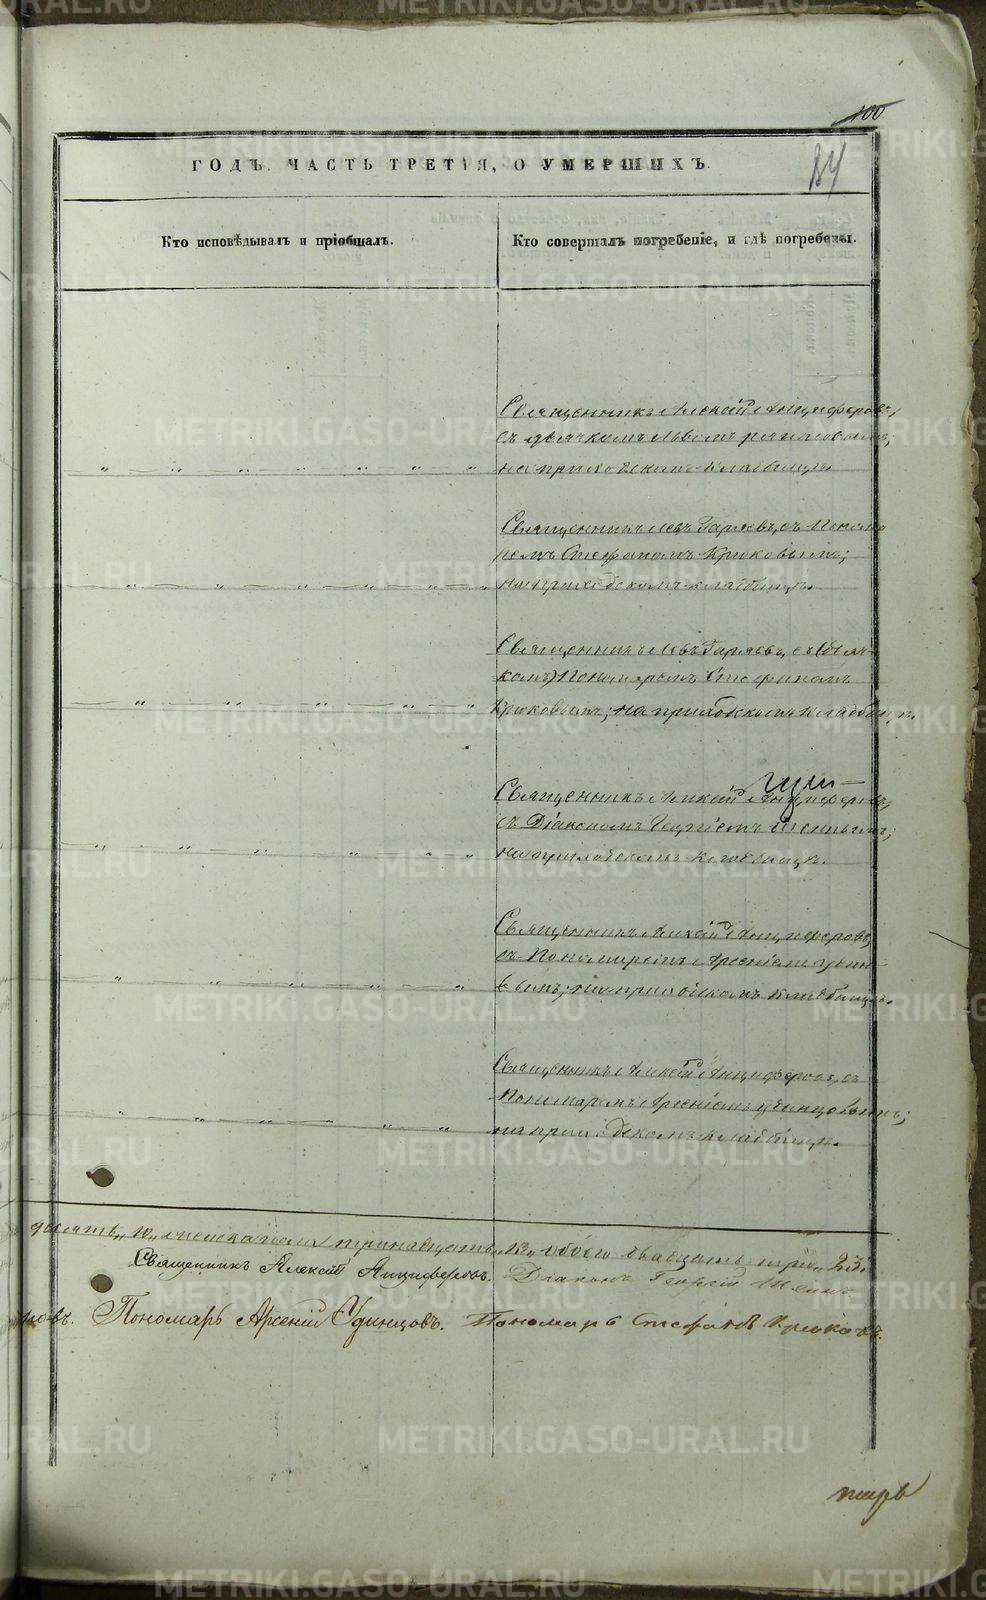 100
84
ГОДЪ. ЧАСТЬ ТРЕТІЯ, О УМЕРШИХЪ.
Кто исповѣдывалъ и пріобщалъ.
Кто совершалъ погребеніе, и гдѣ погребены.
Священникъ Алексій Анциферовъ,
съ дьячкомъ Львомъ
на приходскомъ кладбищѣ.
Священникъ Левъ Гаряевъ, съ Понома
ремъ Стефаномъ Крюковымъ;
на приходскомъ кладбищѣ.
Священникъ Левъ Гаряевъ, съ (Дьяч-
комъ) Пономаремъ Стефаномъ
Крюковымъ; на приходскомъ кладбищѣ.
Священникъ Алексій Анциферовъ,
съ Діакономъ Георгіемъ
на приходскомъ кладбищѣ.
Священникъ Алексій Анциферовъ,
съ Пономаремъ Арсеніемъ Удин-
вымъ; на приходскомъ кладбищѣ.
Священникъ Алексій Анциферовъ, съ
Пономаремъ Арсеніемъ Удинцовымъ;
на приходскомъ кладбищѣ.
десять, 10, женска пола тринадцать, 13, обоего двадцать три, 23.
Священникъ Алексій Анциферовъ. Діаконъ Георгій
новъ. Пономарь Арсеній Удинцовъ. Пономарь Стефанъ Крюковъ.